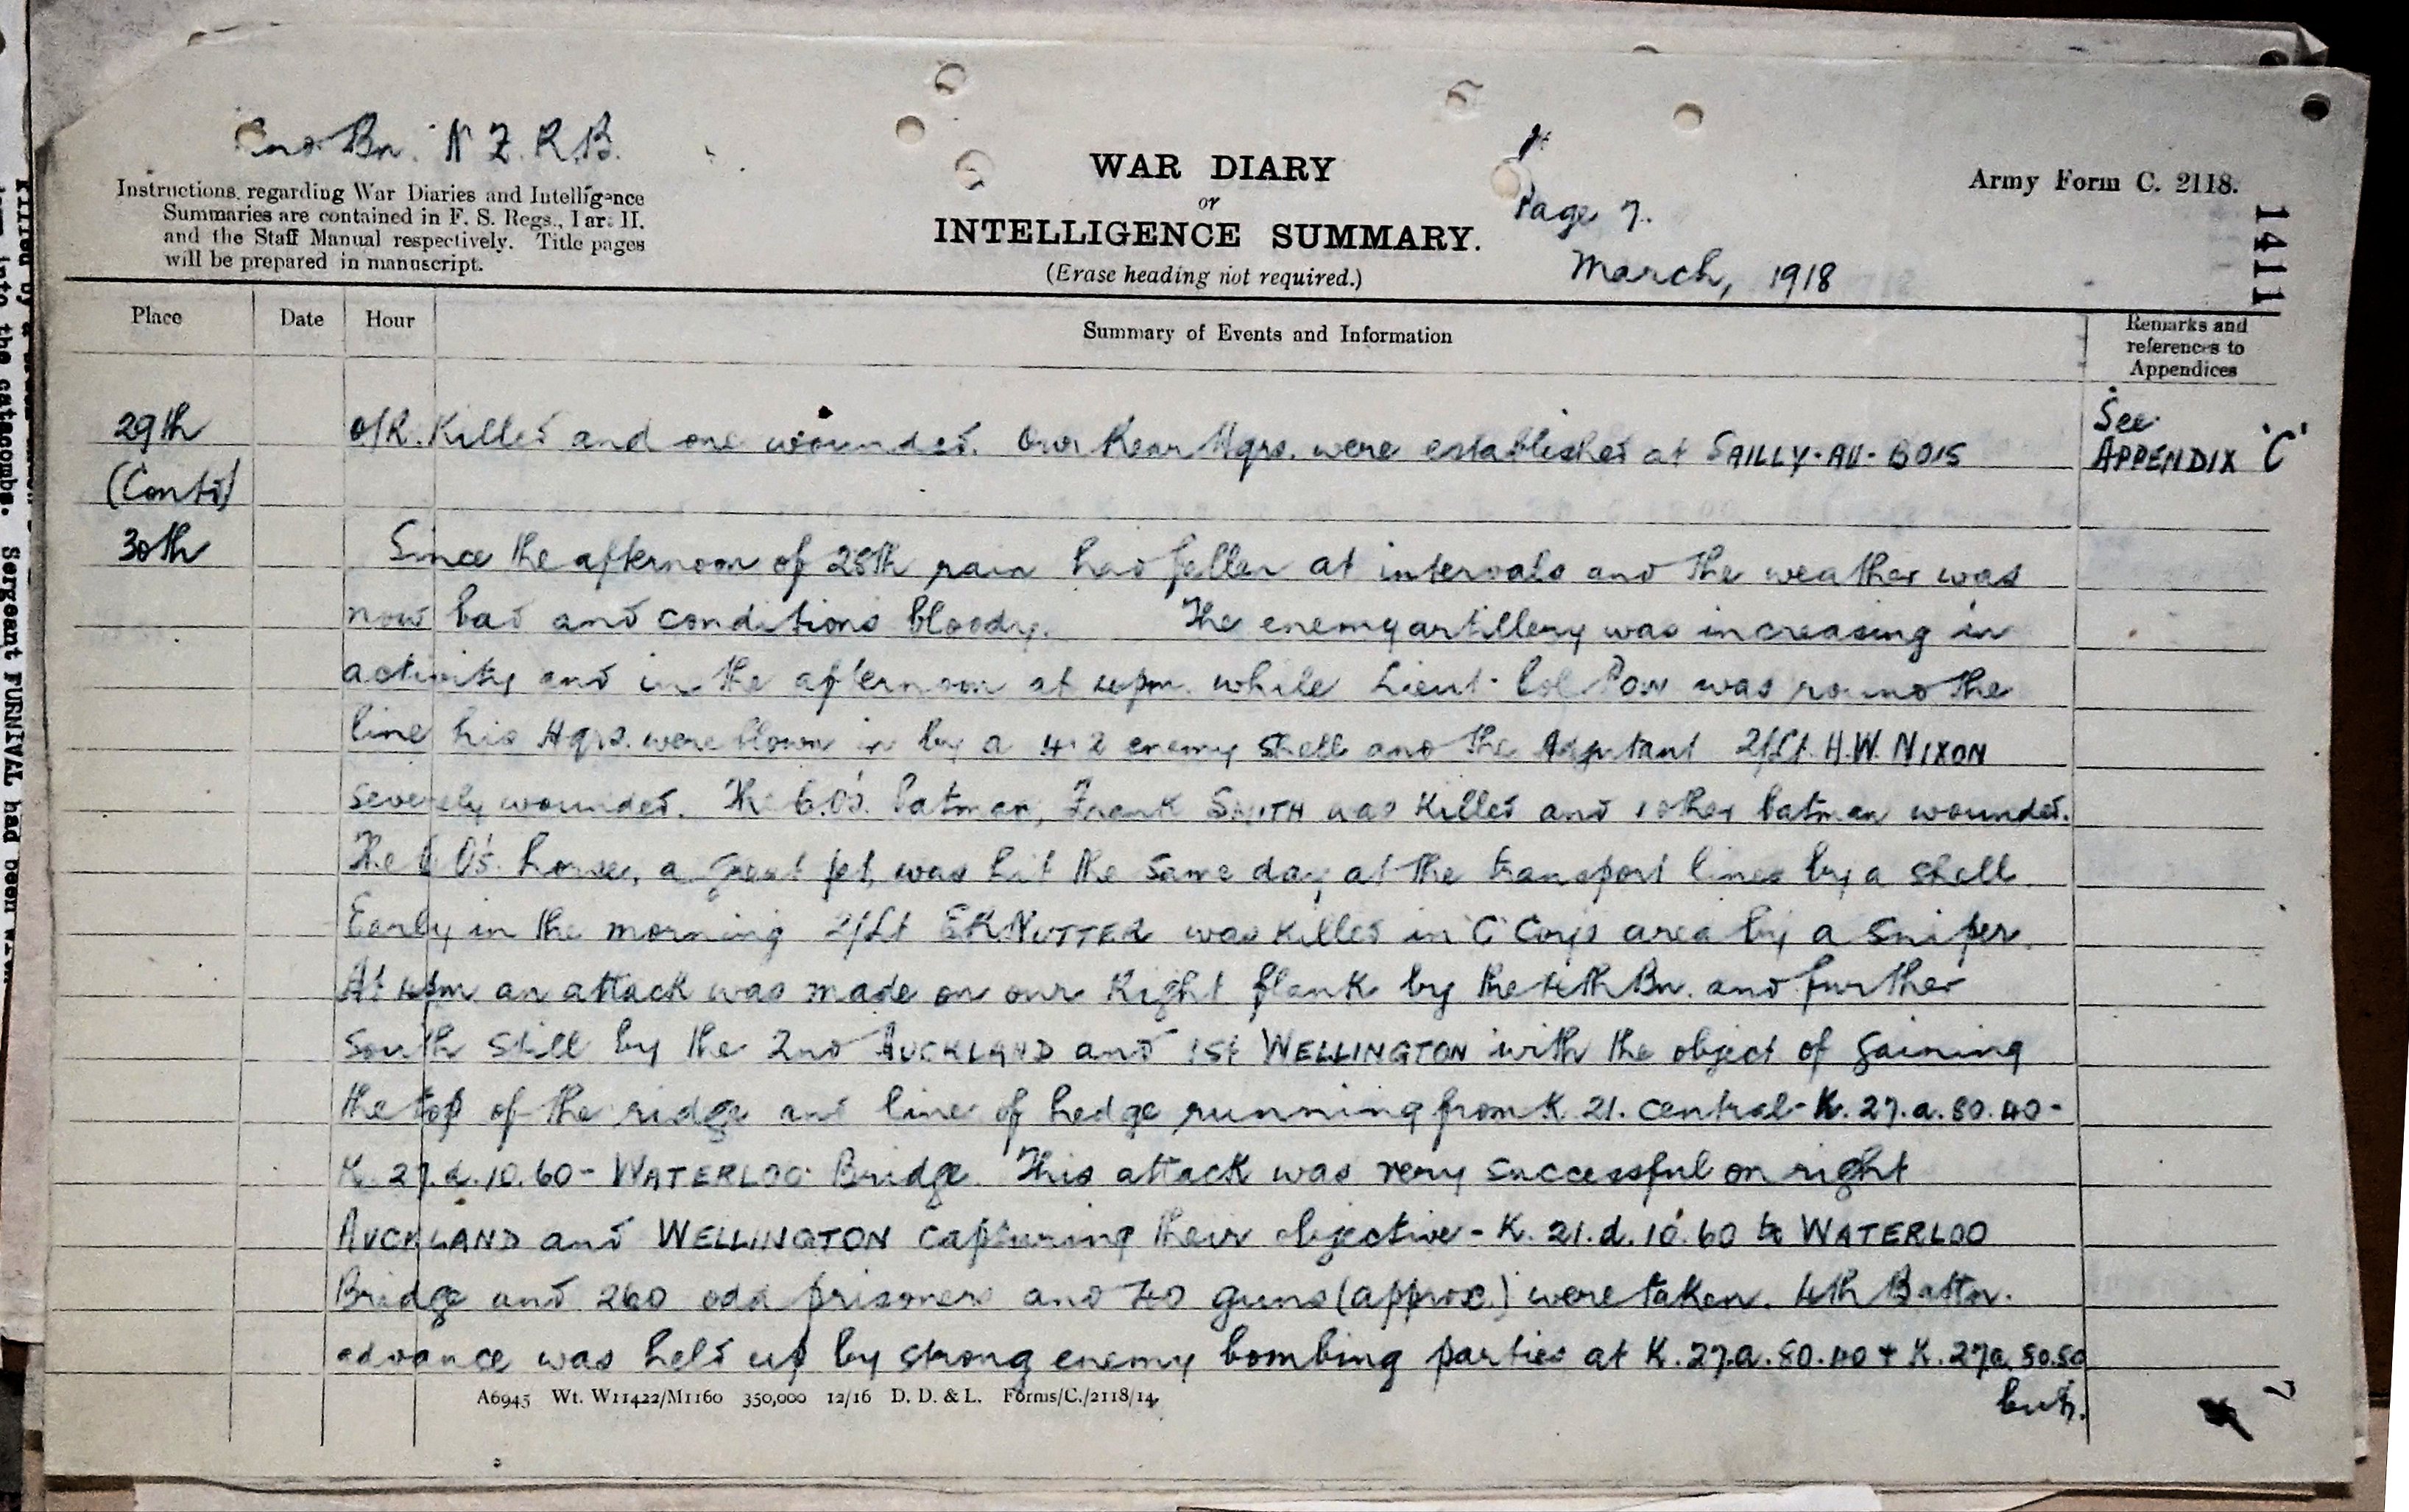 2nd Bn. N Z. R.B.
Instructions regarding War Diaries and Intelligence
Summaries are contained in F. S. Regs., Part II.
and the Staff Manual respectively. Title pages
will be prepared in manuscript.
WAR DIARY
or
INTELLIGENCE SUMMARY.
(Erase heading not required.)
Page 7.
March, 1918
Army Form C. 2118.
1411
Place
Date
Hour
Summary of Events and Information
Remarks and
references to
Appendices
29th
(Contd)
o/R. Killed and one wounded. Our Rear Hqrs. were established at SAILLY-AU-BOIS
See
APPENDIX 'C'
30th
Since the afternoon of 28th rain had fallen at intervals and the weather was
now bad and conditions bloody. The enemy artillery was increasing in
activity and in the afternoon at 4pm. while Lieut-Col Pow was round the
line his Hqrs. were blown in by a 4.2 enemy shell and the Adjutant 2/Lt. H.W. NIXON
severely wounded. The C.O's. batman, Frank SMITH was killed and 1 other batman wounded.
The C O's. horse, a great pet, was hit the same day at the transport lines by a shell.
Early in the morning 2/Lt E K NUTTER was killed in 'C' Coys area by a sniper.
At 4pm an attack was made on our Right flank by the 4th Bn. and further
south still by the 2nd AUCKLAND and 1st WELLINGTON with the object of gaining
the top of the ridge and line of hedge running from K 21. central - K. 27.a.80.40 -
K. 27.d.10.60 - WATERLOO Bridge. This attack was very successful on right
AUCKLAND and WELLINGTON capturing their objective - K. 21.d.10.60 to WATERLOO
Bridge and 260 odd prisoners and 40 guns (approx.) were taken. 4th Battn.
advance was held up by strong enemy bombing parties at K.27.a.80.40 + K.27a.50.50
but.
A6945 Wt. W11422/M1160 350,000 12/16 D. D. & L. Forms/C./2118/14.
7
into the catacombs. Sergeant FURNIVAL had been